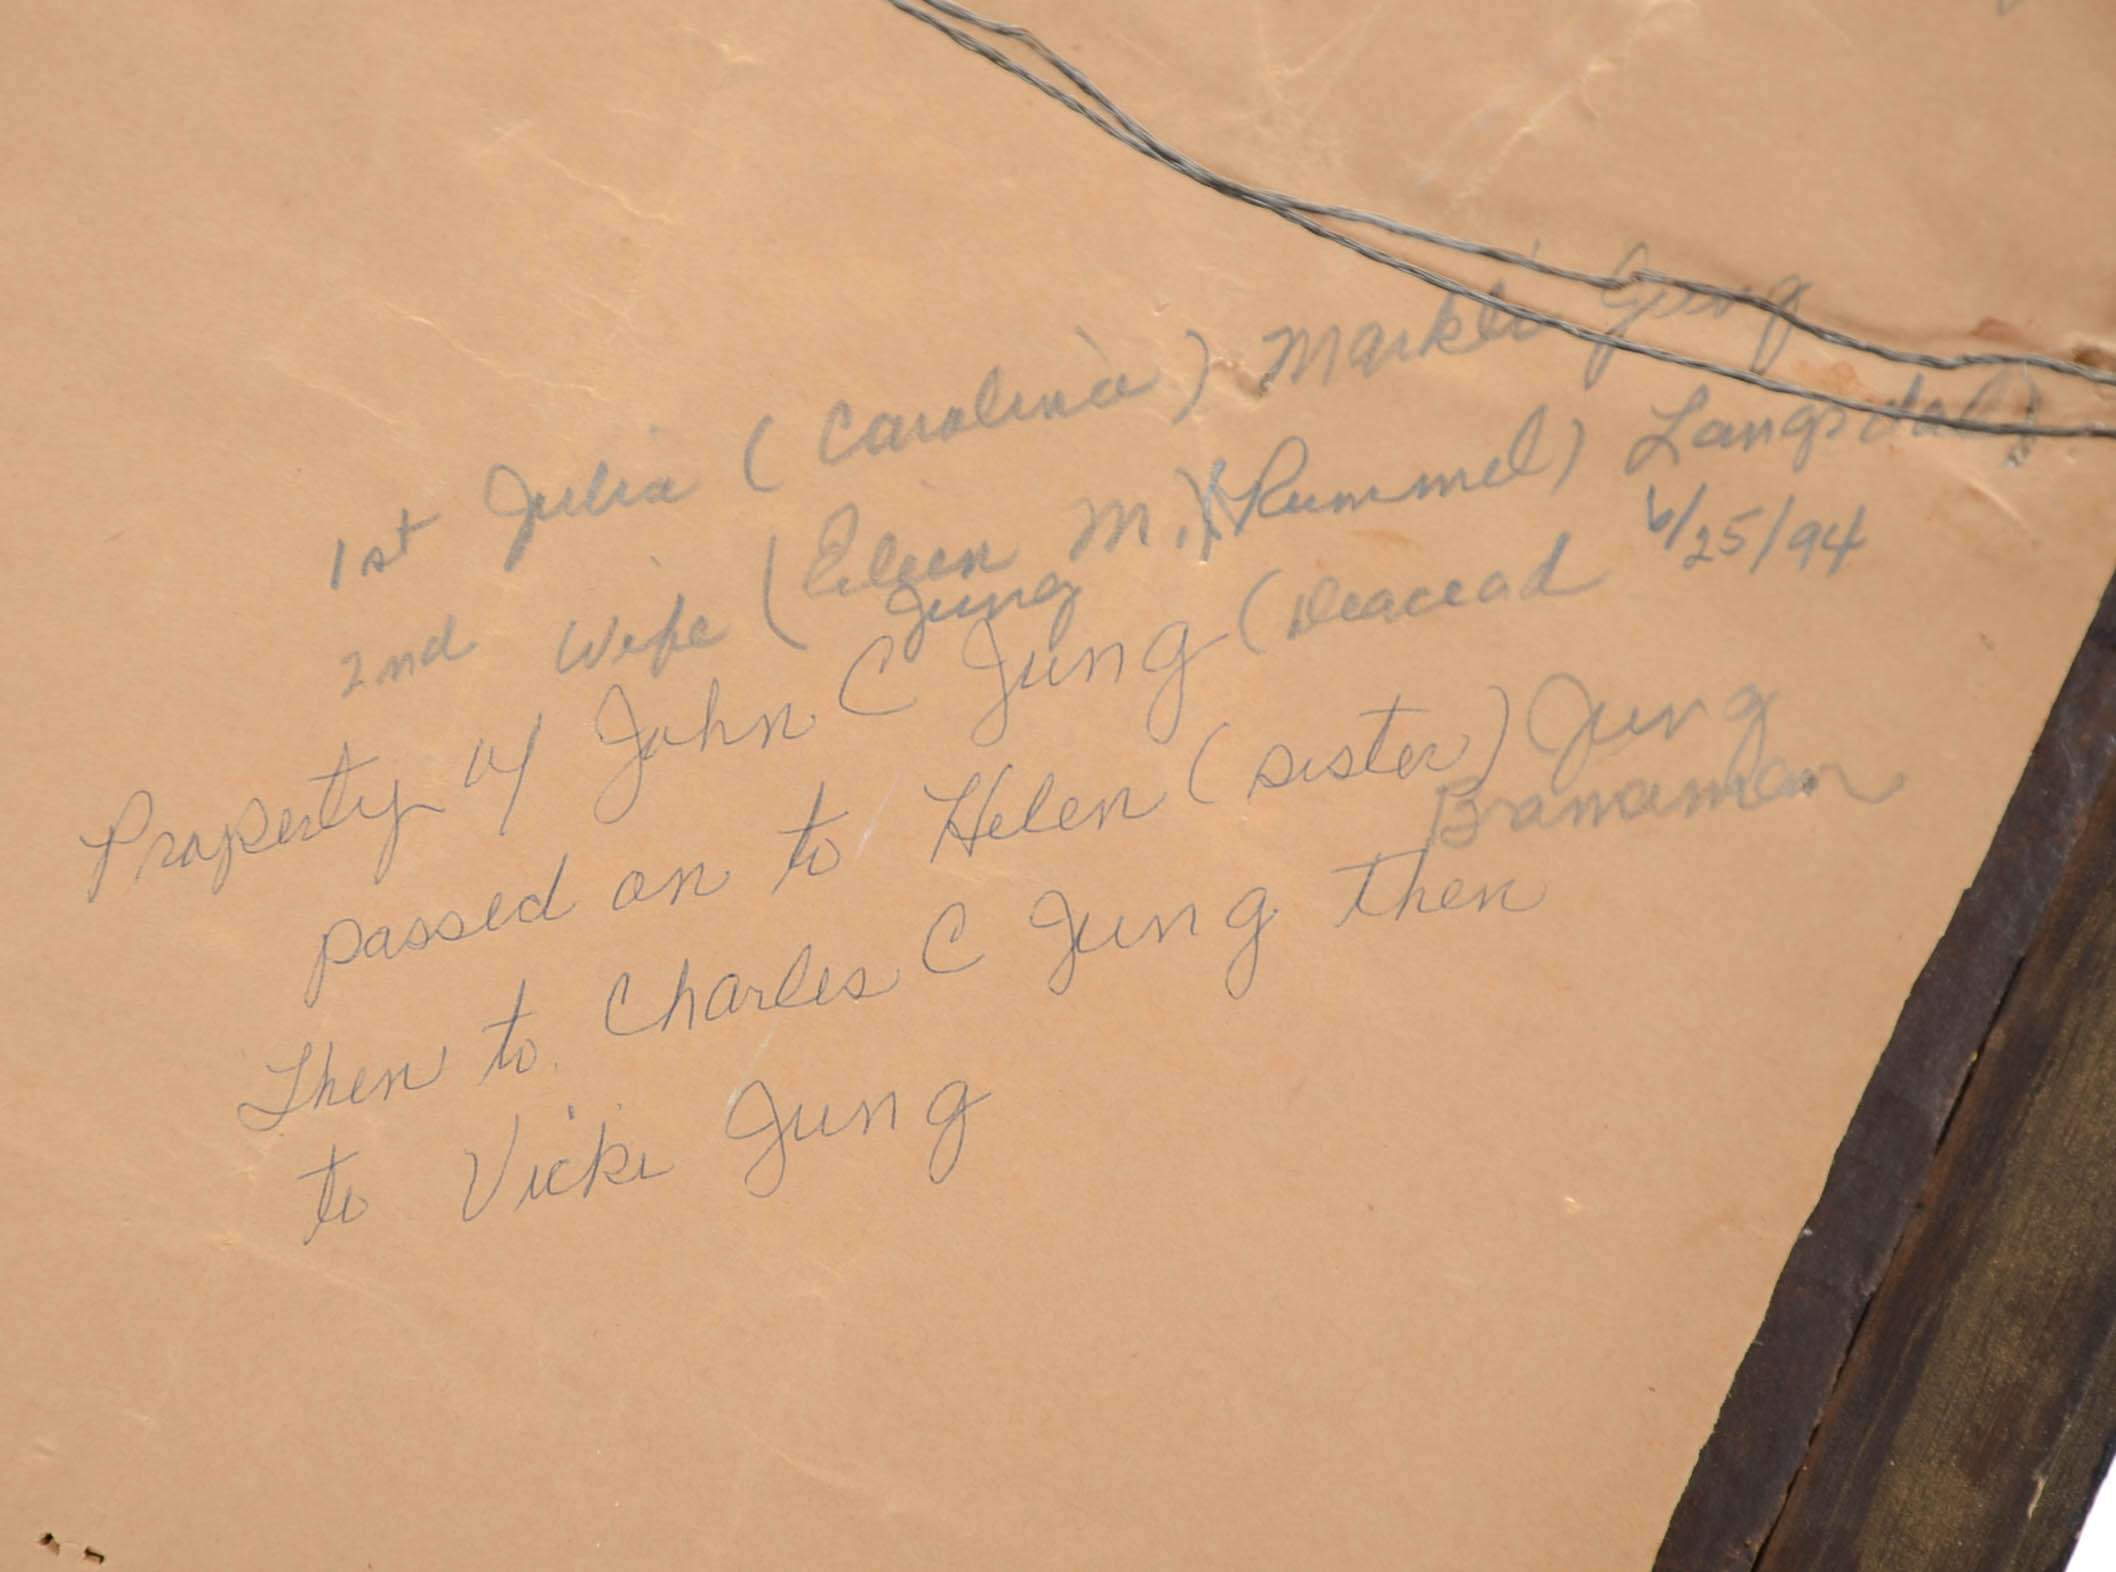 1st Julia (Carolina) Markli Jung
2nd Wife (Eileen M.)(Rummel) Langsdale)
Jung
Property of John C Jung (Deacead 6/25/94
passed on to Helen (sister) Jung
Branaman
Then to Charles C Jung then
to Vicki Jung